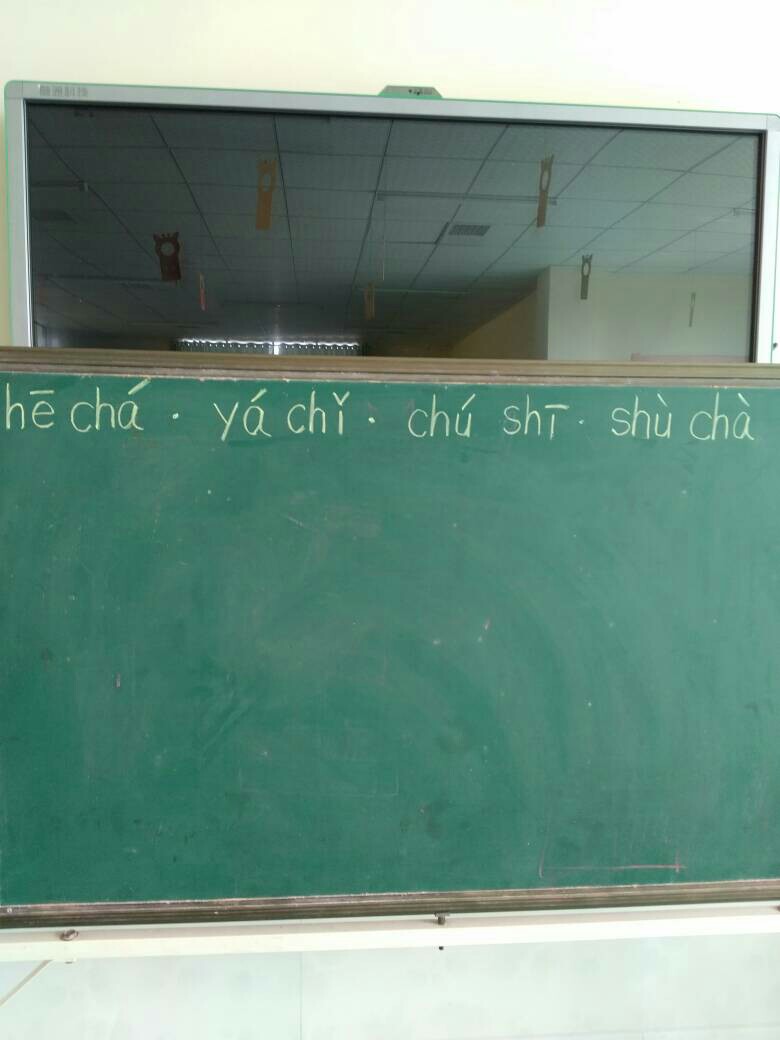 hē chá · yá chǐ · chú shī · shù chà